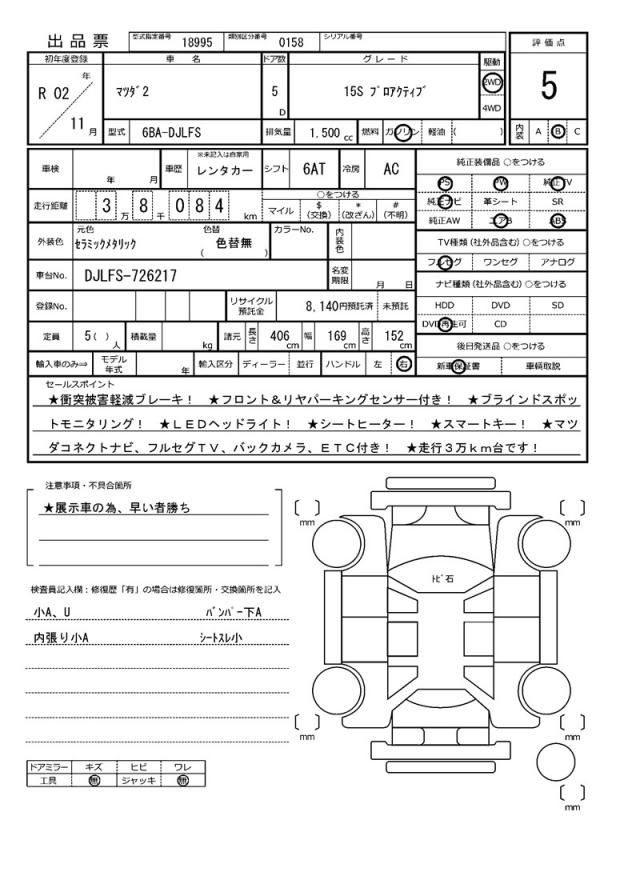 出品票 型式指定番号 18995 類別区分番号 0158 シリアル番号
評価点
5
内装 A B C
初年度登録 車名 ドア数 グレード 駆動
R 02 年 11 月 マツダ2 5 D 15S プロアクティブ 2WD 4WD
型式 6BA-DJLFS 排気量 1,500 cc 燃料 ガソリン 軽油 ( )
車検 年 月 車歴 ※未記入は自家用 レンタカー シフト 6AT 冷房 AC
走行距離 3 万 8 千 0 8 4 km ○をつける マイル $ (交換) * (改ざん) # (不明)
外装色 元色 セラミックメタリック 色替 ( 色替無 ) カラーNo. 内装色
車台No. DJLFS-726217 名変期限 月 日
登録No. リサイクル預託金 8,140円預託済 未預託
定員 5 ( ) 人 積載量 kg 諸元 長さ 406 cm 幅 169 cm 高さ 152 cm
輸入車のみ⇒ モデル年式 年 輸入区分 ディーラー 並行 ハンドル 左 右
純正装備品 ○をつける
PS PW 純正TV
純正ナビ 革シート SR
純正AW エアB ABS
TV種類 (社外品含む) ○をつける
フルセグ ワンセグ アナログ
ナビ種類 (社外品含む) ○をつける
HDD DVD SD
DVD再生可 CD
後日発送品 ○をつける
新車保証書 車輌取説
セールスポイント
★衝突被害軽減ブレーキ! ★フロント&リヤパーキングセンサー付き! ★ブラインドスポッ
トモニタリング! ★LEDヘッドライト! ★シートヒーター! ★スマートキー! ★マツ
ダコネクトナビ、フルセグTV、バックカメラ、ETC付き! ★走行3万km台です!
注意事項・不具合箇所
★展示車の為、早い者勝ち
検査員記入欄:修復歴「有」の場合は修復箇所・交換箇所を記入
小A、U バンパー下A
内張り小A シートスレ小
ドアミラー キズ ヒビ ワレ
工具 無 ジャッキ 無
トビ石
[ ] mm
[ ] mm
[ ] mm
[ ] mm
[ ] mm